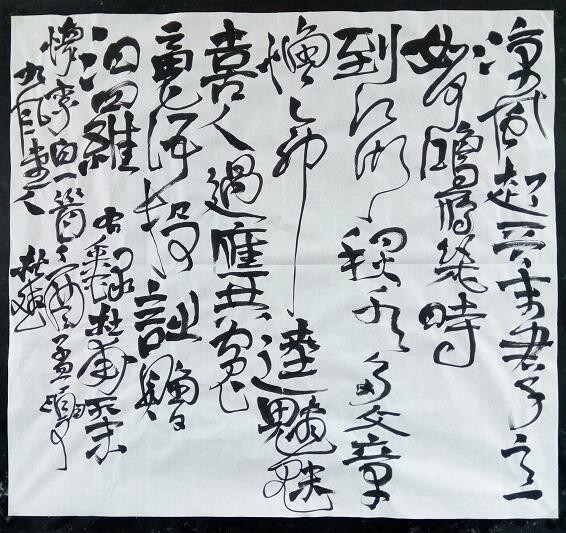 涼風起天末君子意
如何鴻雁幾時
到江湖秋水多文章
憎命達魑魅
喜人過應共冤
魂語投詩贈
汨羅 右錄杜甫天末
懷李白一首